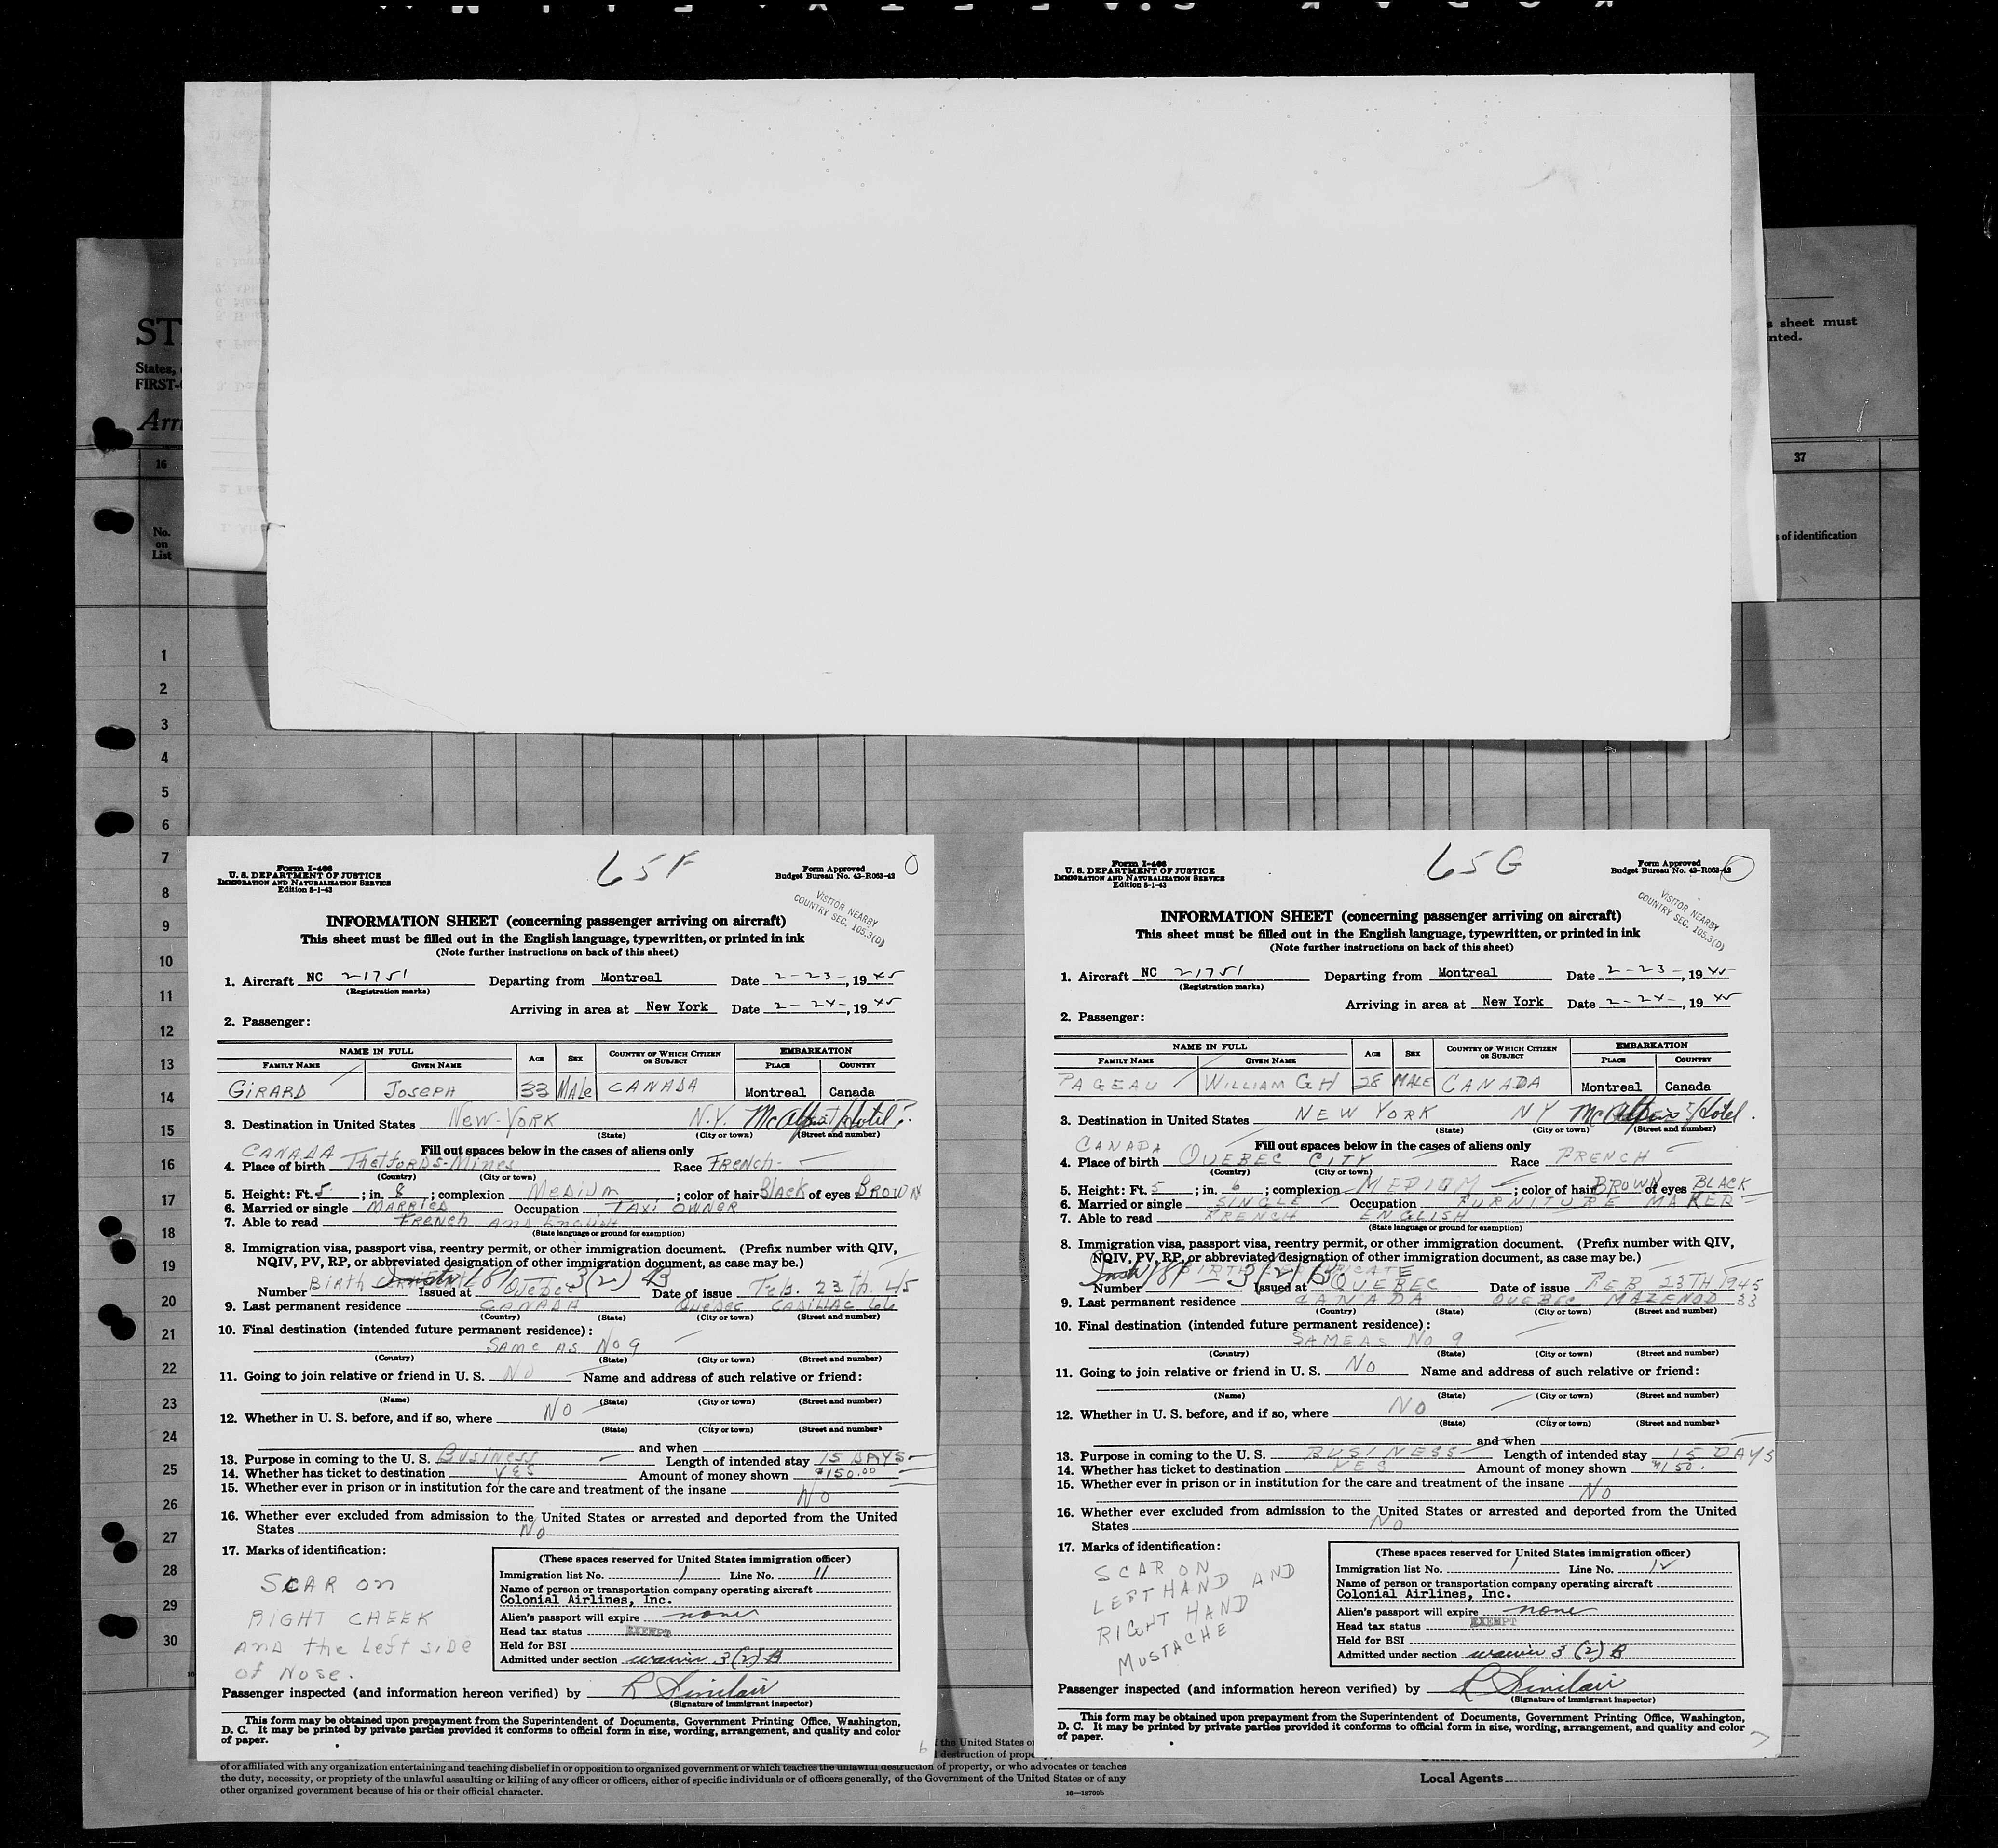 ST
States,
FIRST-
Arri
s sheet must
nted.
16
37
No.
on
List
s of identification
1
2
3
4
5
6
7
8
9
10
11
12
13
14
15
16
17
18
19
20
21
22
23
24
25
26
27
28
29
30
Form I-466
U. S. DEPARTMENT OF JUSTICE
IMMIGRATION AND NATURALIZATION SERVICE
Edition 8-1-43
65F
Form Approved
Budget Bureau No. 43-R063-42
VISITOR NEARBY
COUNTRY SEC. 105.3(D)
INFORMATION SHEET (concerning passenger arriving on aircraft)
This sheet must be filled out in the English language, typewritten, or printed in ink
(Note further instructions on back of this sheet)
1. Aircraft NC 21751 Departing from Montreal Date 2-23-, 1945
(Registration marks)
Arriving in area at New York Date 2-24-, 1945
2. Passenger:
NAME IN FULL AGE SEX COUNTRY OF WHICH CITIZEN OR SUBJECT EMBARKATION
FAMILY NAME GIVEN NAME PLACE COUNTRY
GIRARD JOSEPH 33 MALe CANADA Montreal Canada
3. Destination in United States New-York N.Y. McAlpin Hotel
(State) (City or town) (Street and number)
Fill out spaces below in the cases of aliens only
CANADA
4. Place of birth THetFORDS-Mines Race FRENCH-
(Country) (City or town)
5. Height: Ft. 5 ; in. 8 ; complexion MeDium ; color of hair Black of eyes BROWN
6. Married or single MARRIED Occupation TAXI OWNER
7. Able to read FRENCH AND ENGLISH
(State language or ground for exemption)
8. Immigration visa, passport visa, reentry permit, or other immigration document. (Prefix number with QIV,
NQIV, PV, RP, or abbreviated designation of other immigration document, as case may be.)
Number Birth Issued at Quebec 3(2) B Date of issue Feb. 23TH. 45
9. Last permanent residence CANADA QUEBEC CADILLAC 66
(Country) (State) (City or town) (Street and number)
10. Final destination (intended future permanent residence):
SAMe AS No 9
(Country) (State) (City or town) (Street and number)
11. Going to join relative or friend in U. S. NO Name and address of such relative or friend:
(Name) (State) (City or town) (Street and number)
12. Whether in U. S. before, and if so, where NO
(State) (City or town) (Street and number)
and when
13. Purpose in coming to the U. S. Business Length of intended stay 15 DAYS
14. Whether has ticket to destination YES Amount of money shown $150.00
15. Whether ever in prison or in institution for the care and treatment of the insane No
16. Whether ever excluded from admission to the United States or arrested and deported from the United
States No
17. Marks of identification:
SCAR on
RIGHT CHEEK
AND the Left side
of Nose.
(These spaces reserved for United States immigration officer)
Immigration list No. 1 Line No. 11
Name of person or transportation company operating aircraft
Colonial Airlines, Inc.
Alien's passport will expire none
Head tax status EXEMPT
Held for BSI
Admitted under section waiver 3(2) B
Passenger inspected (and information hereon verified) by R Sinclair
(Signature of immigrant inspector)
This form may be obtained upon prepayment from the Superintendent of Documents, Government Printing Office, Washington,
D. C. It may be printed by private parties provided it conforms to official form in size, wording, arrangement, and quality and color
of paper.
6
Form I-466
U. S. DEPARTMENT OF JUSTICE
IMMIGRATION AND NATURALIZATION SERVICE
Edition 8-1-43
65G
Form Approved
Budget Bureau No. 43-R063-42
VISITOR NEARBY
COUNTRY SEC. 105.3(D)
INFORMATION SHEET (concerning passenger arriving on aircraft)
This sheet must be filled out in the English language, typewritten, or printed in ink
(Note further instructions on back of this sheet)
1. Aircraft NC 21751 Departing from Montreal Date 2-23-, 1945
(Registration marks)
Arriving in area at New York Date 2-24-, 1945
2. Passenger:
NAME IN FULL AGE SEX COUNTRY OF WHICH CITIZEN OR SUBJECT EMBARKATION
FAMILY NAME GIVEN NAME PLACE COUNTRY
PAGEAU WILLIAM GH 28 MALE CANADA Montreal Canada
3. Destination in United States NEW YORK NY McAlpin Hotel.
(State) (City or town) (Street and number)
Fill out spaces below in the cases of aliens only
CANADA
4. Place of birth QUEBEC CITY Race FRENCH
(Country) (City or town)
5. Height: Ft. 5 ; in. 6 ; complexion MEDIUM ; color of hair BROWN of eyes BLACK
6. Married or single SINGLE Occupation FURNITURE MAKER
7. Able to read FRENCH ENGLISH
(State language or ground for exemption)
8. Immigration visa, passport visa, reentry permit, or other immigration document. (Prefix number with QIV,
NQIV, PV, RP, or abbreviated designation of other immigration document, as case may be.)
BIRTH CERTIFICATE 3(2) B
Number Issued at QUEBEC Date of issue FEB 23TH 1945
9. Last permanent residence CANADA QUEBEC MAZENOD 33
(Country) (State) (City or town) (Street and number)
10. Final destination (intended future permanent residence):
SAME AS No 9
(Country) (State) (City or town) (Street and number)
11. Going to join relative or friend in U. S. NO Name and address of such relative or friend:
(Name) (State) (City or town) (Street and number)
12. Whether in U. S. before, and if so, where NO
(State) (City or town) (Street and number)
and when
13. Purpose in coming to the U. S. BUSINESS Length of intended stay 15 DAYS
14. Whether has ticket to destination YES Amount of money shown $150.
15. Whether ever in prison or in institution for the care and treatment of the insane No
16. Whether ever excluded from admission to the United States or arrested and deported from the United
States NO
17. Marks of identification:
SCAR ON
LEFT HAND AND
RIGHT HAND
MUSTACHE
(These spaces reserved for United States immigration officer)
Immigration list No. 1 Line No. 12
Name of person or transportation company operating aircraft
Colonial Airlines, Inc.
Alien's passport will expire none
Head tax status EXEMPT
Held for BSI
Admitted under section waiver 3 (2) B
Passenger inspected (and information hereon verified) by R Sinclair
(Signature of immigrant inspector)
This form may be obtained upon prepayment from the Superintendent of Documents, Government Printing Office, Washington,
D. C. It may be printed by private parties provided it conforms to official form in size, wording, arrangement, and quality and color
of paper.
7
the United States or
destruction of prope
of or affiliated with any organization entertaining and teaching disbelief in or opposition to organized government or which teaches the unlawful destruction of property, or who advocates or teaches
the duty, necessity, or propriety of the unlawful assaulting or killing of any officer or officers, either of specific individuals or of officers generally, of the Government of the United States or of any
other organized government because of his or their official character.
16—18709b
Local Agents